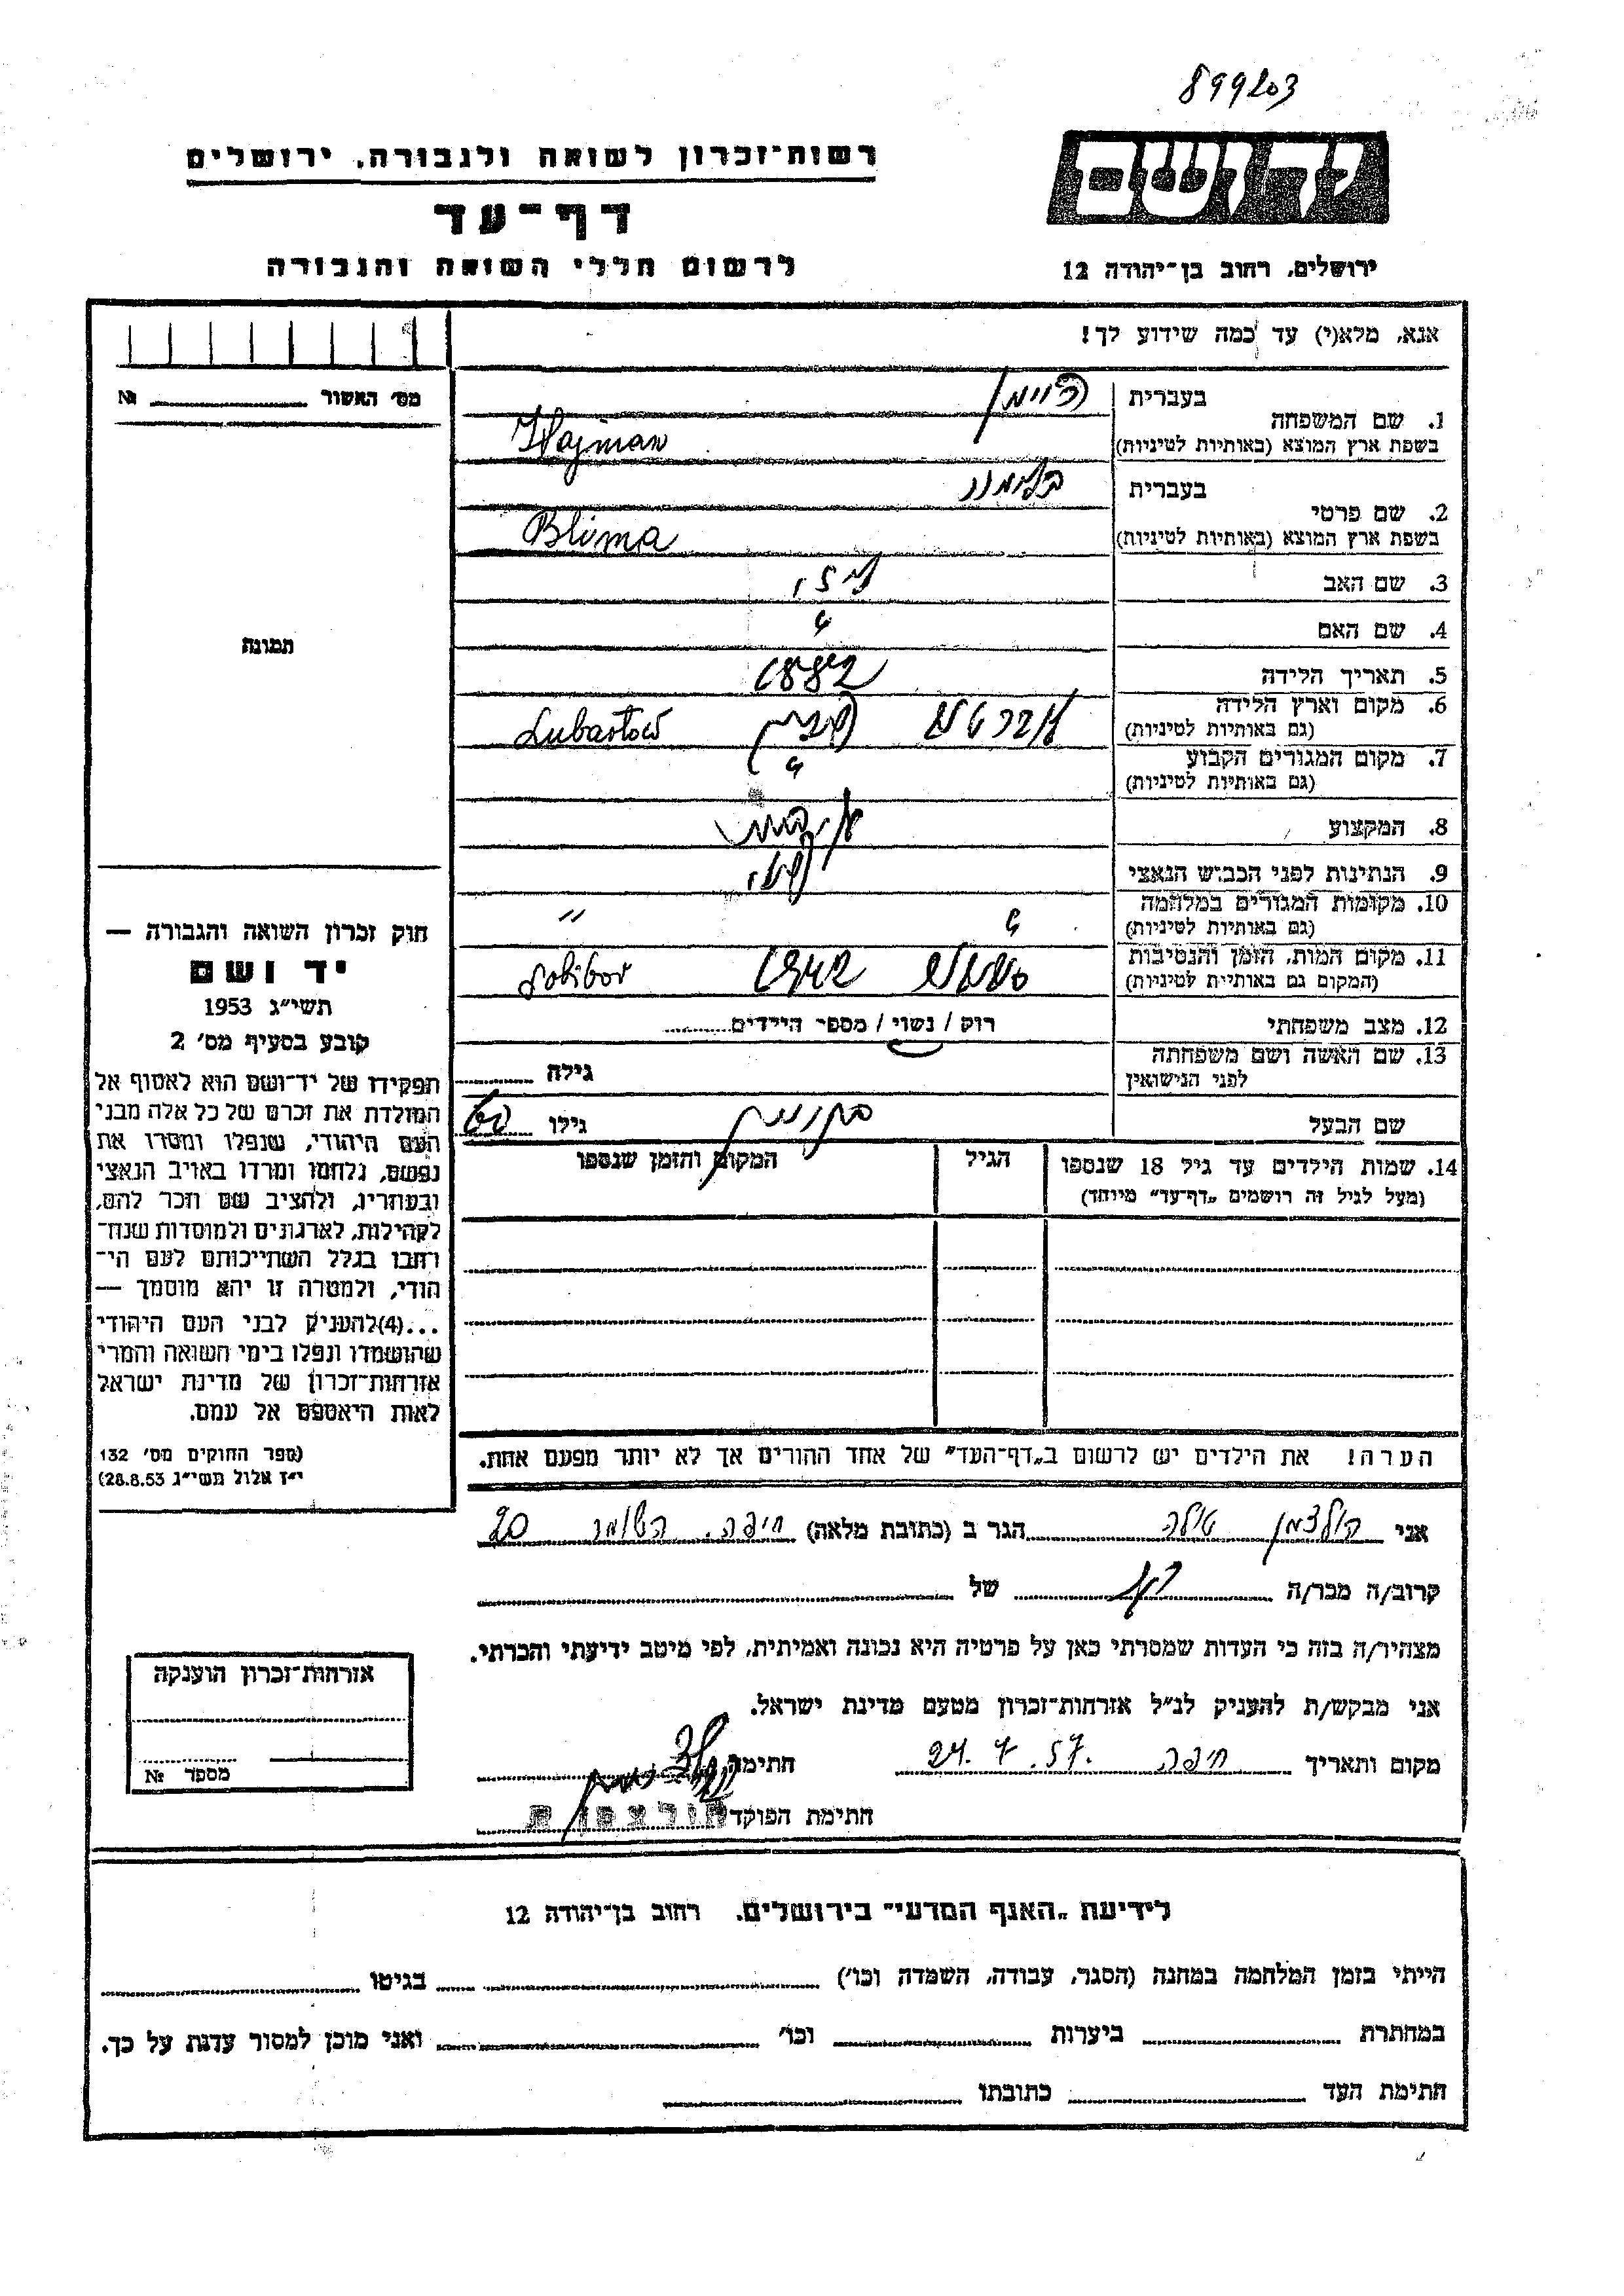 899203
רשות־זכרון לשואה ולגבורה, ירושלים
יד ושם
דף־עד
לרשום חללי השואה והגבורה
ירושלים, רחוב בן־יהודה 12
אנא, מלא(י) עד כמה שידוע לך!
מס׳ האשור № 
1. שם המשפחה
בעברית היימן
בשפת ארץ המוצא (באותיות לטיניות) Hajman
2. שם פרטי
בעברית בלומה
בשפת ארץ המוצא (באותיות לטיניות) Blima
3. שם האב
4. שם האם
5. תאריך הלידה 1882
6. מקום וארץ הלידה
(גם באותיות לטיניות) Lubartów
7. מקום המגורים הקבוע
(גם באותיות לטיניות)
8. המקצוע
9. הנתינות לפני הכבוש הנאצי
10. מקומות המגורים במלחמה
(גם באותיות לטיניות) "
11. מקום המות, הזמן והנסיבות
(המקום גם באותיות לטיניות) 1942 Sobibor
12. מצב משפחתי רוק / נשוי / מספר הילדים
13. שם האשה ושם משפחתה
לפני הנישואין גילה
שם הבעל גילו 60
14. שמות הילדים עד גיל 18 שנספו
(מעל לגיל זה רושמים „דף־עד״ מיוחד)
הגיל
המקום והזמן שנספו
תמונה
חוק זכרון השואה והגבורה —
יד ושם
תשי״ג 1953
קובע בסעיף מס׳ 2
תפקידו של יד־ושם הוא לאסוף אל
המולדת את זכרם של כל אלה מבני
העם היהודי, שנפלו ומסרו את
נפשם, נלחמו ומרדו באויב הנאצי
ובעוזריו, ולהציב שם וזכר להם,
לקהילות, לארגונים ולמוסדות שנח־
רחבו בגלל השתייכותם לעם הי־
הודי, ולמטרה זו יהא מוסמך —
...(4) להעניק לבני העם היהודי
שהושמדו ונפלו בימי השואה והמרי
אזרחות־זכרון של מדינת ישראל
לאות היאספם אל עמם.
(ספר החוקים מס׳ 132
י״ז אלול תשי״ג 28.8.53)
הערה! את הילדים יש לרשום ב„דף־העד״ של אחד ההורים אך לא יותר מפעם אחת.
אני הולצמן טולה הגר ב (כתובת מלאה) חיפה. השומר 20
קרוב/ה מכר/ה של
מצהיר/ה בזה כי העדות שמסרתי כאן על פרטיה היא נכונה ואמיתית, לפי מיטב ידיעתי והכרתי.
אני מבקש/ת להעניק לנ״ל אזרחות־זכרון מטעם מדינת ישראל.
מקום ותאריך חיפה 24.7.57. חתימה
חתימת הפוקד
אזרחות־זכרון הוענקה
מספר №
לידיעת „האגף המדעי״ בירושלים. רחוב בן־יהודה 12
הייתי בזמן המלחמה במחנה (הסגר, עבודה, השמדה וכו׳) בגיטו
במחתרת ביערות וכו׳ ואני מוכן למסור עדות על כך.
חתימת העד כתובתו